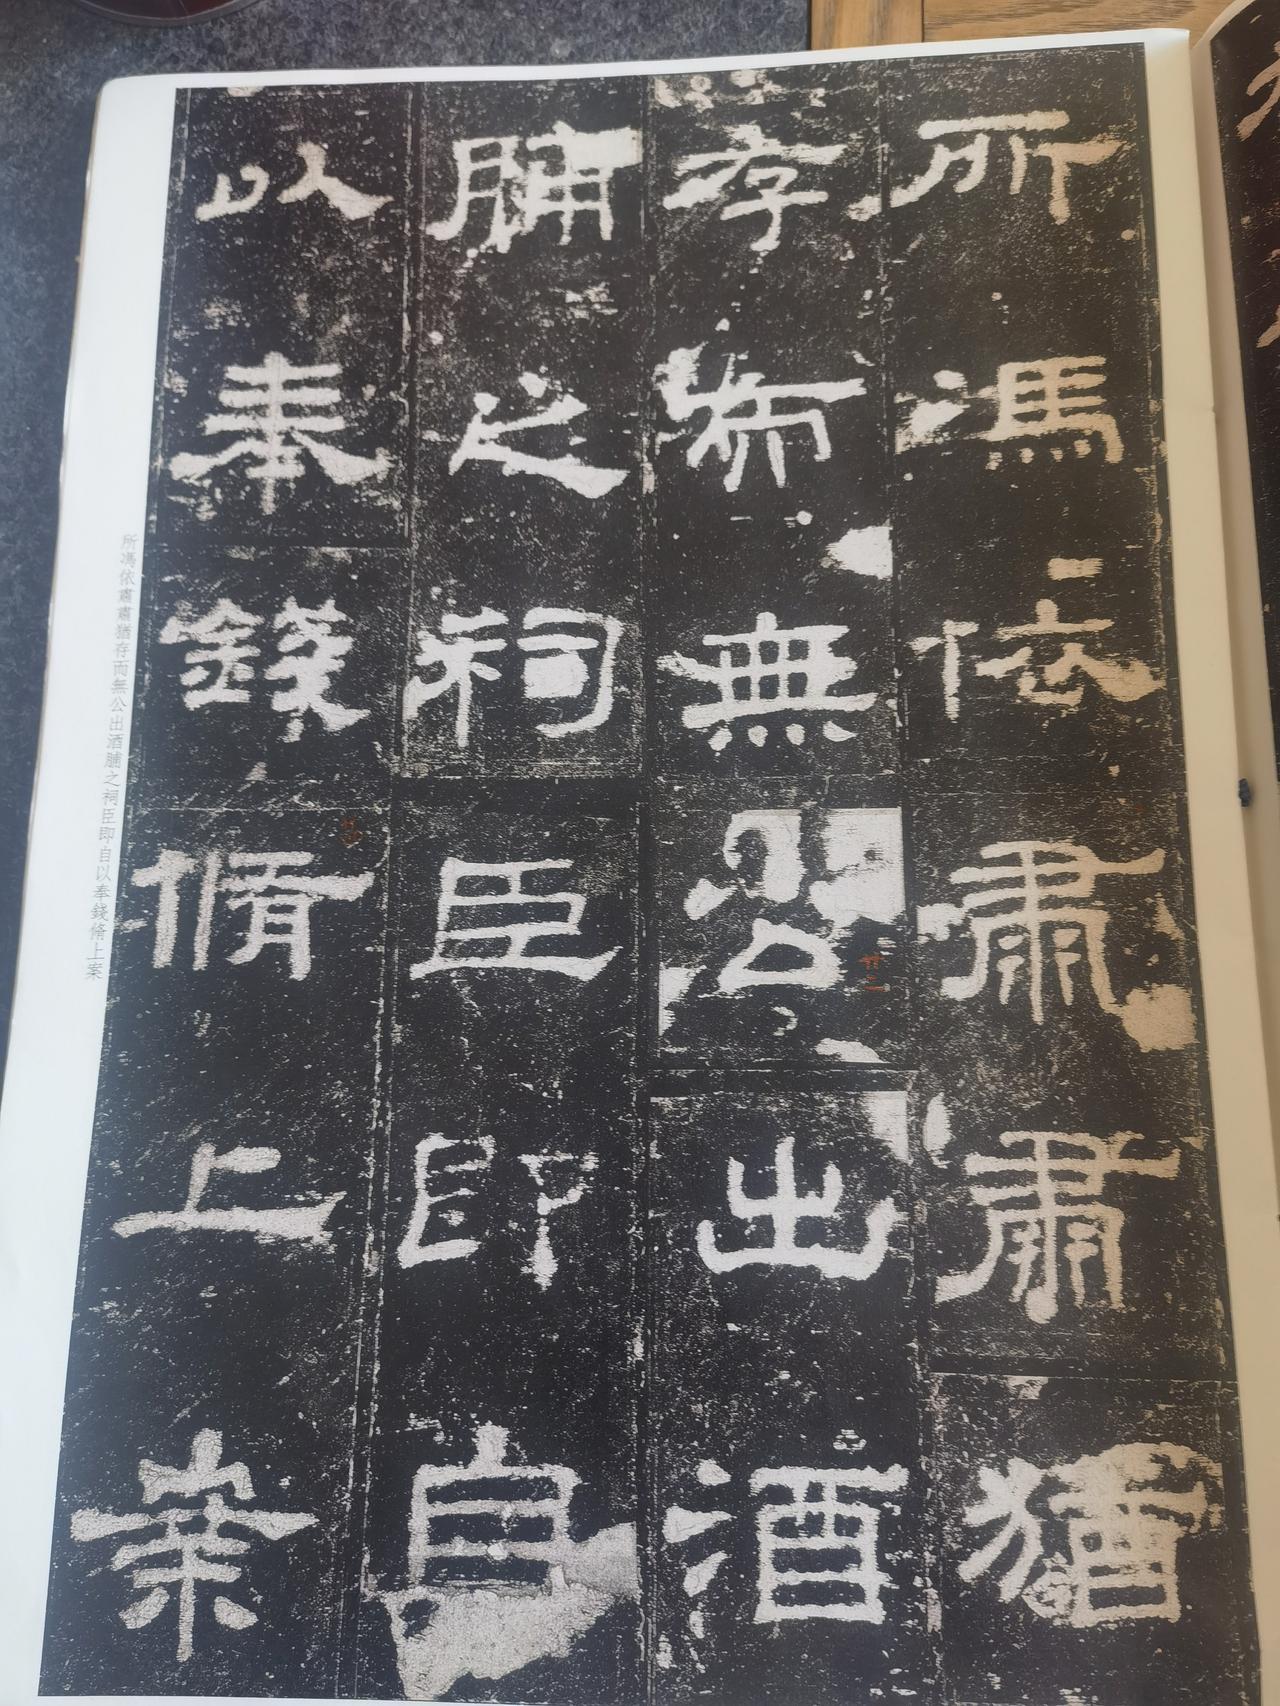 所馮依肅肅猶
存而無公出酒
脯之祠臣即自
以奉錢脩上案
所馮依肅肅猶存而無公出酒脯之祠臣即自以奉錢脩上案